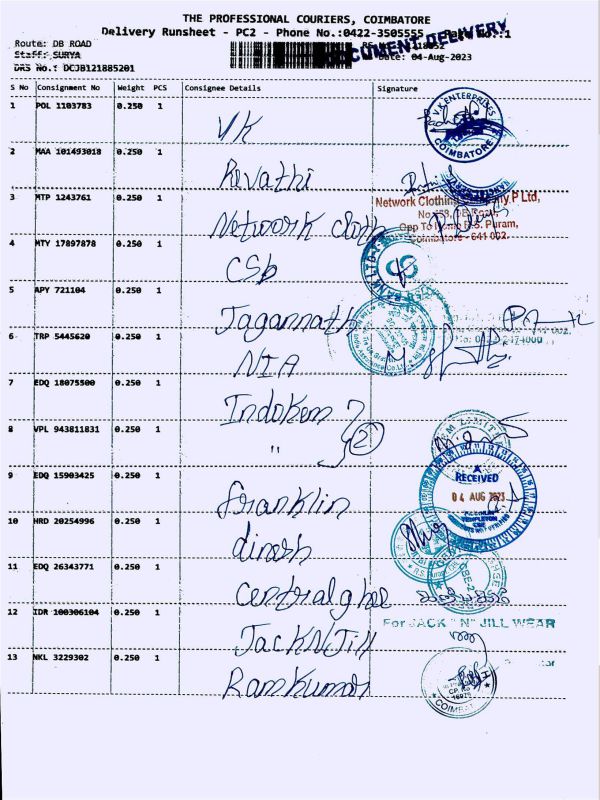 THE PROFESSIONAL COURIERS, COIMBATORE
Delivery Runsheet - PC2 - Phone No.:0422-3505555 Page No.:1
DOCUMENT DELIVERY
Route: DB ROAD
Staff: SURYA
Date: 04-Aug-2023
DRS No.: DCJB121885201
S No Consignment No Weight PCS Consignee Details Signature
1 POL 1103783 0.250 1 VK
V.K.ENTERPRISES
COIMBATORE
2 MAA 101493018 0.250 1 Revathi
3 MTP 1243761 0.250 1 Network cloth
Network Clothing Company P Ltd,
R.S. Puram,
Coimbatore - 641 002.
4 MTY 17897878 0.250 1 CSb
5 APY 721104 0.250 1 Jagannath
6 TRP 5445620 0.250 1 NIA
7 EDQ 18075500 0.250 1 Indokem
8 VPL 943811831 0.250 1 " 2
9 EDQ 15903425 0.250 1 franklin
RECEIVED
04 AUG 2023
10 HRD 20254996 0.250 1 dinesh
11 EDQ 26343771 0.250 1 Central ghee
12 IDR 100306104 0.250 1 Jack N Jill
For JACK "N" JILL WEAR
13 NKL 3229302 0.250 1 Ramkumar